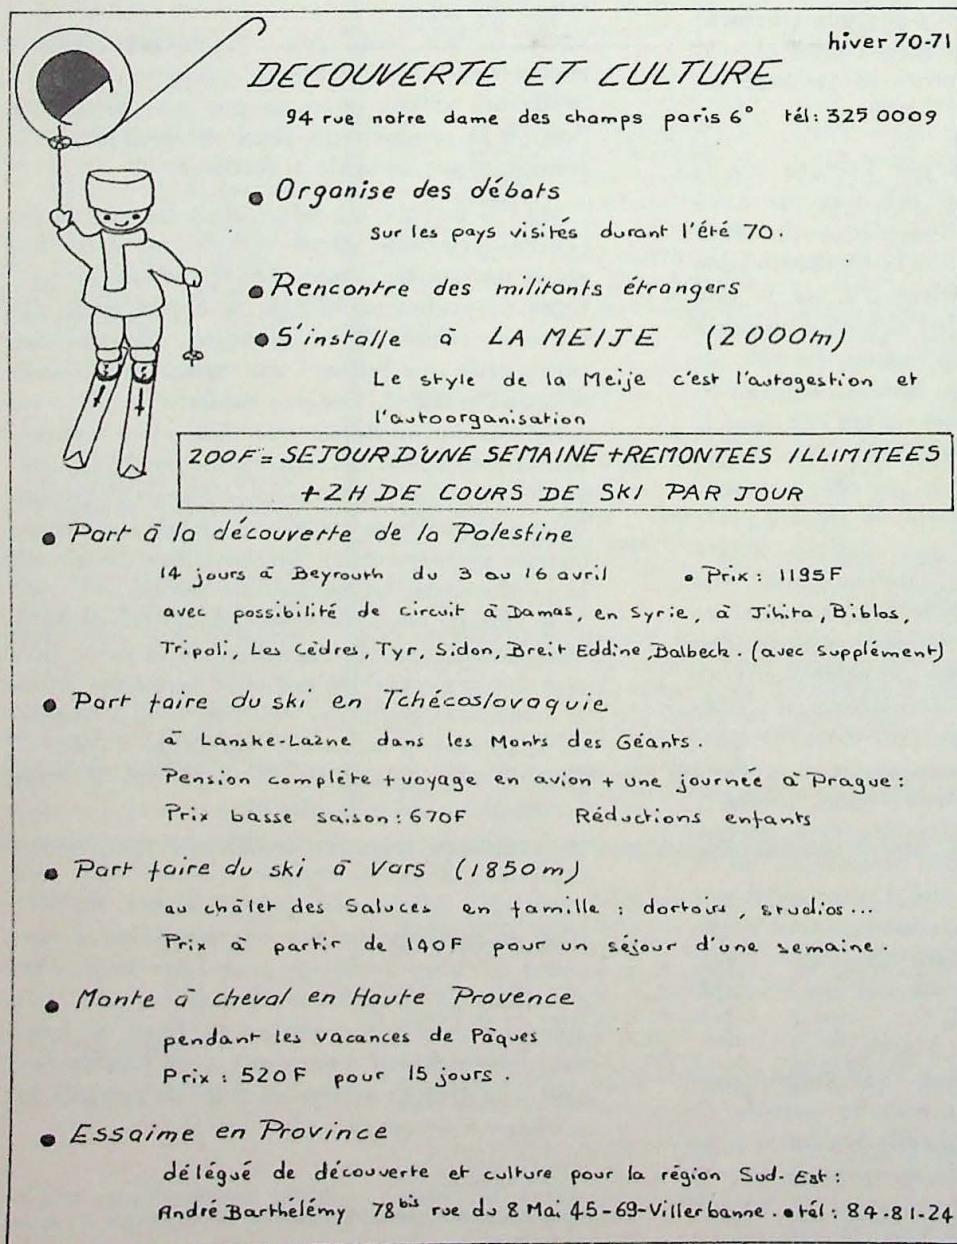 hiver 70-71
DECOUVERTE ET CULTURE
94 rue notre dame des champs paris 6° tél: 325 0009
• Organise des débats
sur les pays visités durant l'été 70.
• Rencontre des militants étrangers
• S'installe à LA MEIJE (2000m)
Le style de la Meije c'est l'autogestion et
l'autoorganisation
200F = SEJOUR D'UNE SEMAINE + REMONTEES ILLIMITEES
+ 2H DE COURS DE SKI PAR JOUR
• Part à la découverte de la Palestine
14 jours à Beyrouth du 3 au 16 avril • Prix: 1195F
avec possibilité de circuit à Damas, en Syrie, à Jihita, Biblos,
Tripoli, Les Cèdres, Tyr, Sidon, Breit Eddine, Balbeck. (avec supplément)
• Part faire du ski en Tchécoslovaquie
à Lanske-Lazne dans les Monts des Géants.
Pension complète + voyage en avion + une journée à Prague:
Prix basse saison: 670F Réductions enfants
• Part faire du ski à Vars (1850m)
au châlet des Saluces en famille: dortoirs, studios...
Prix à partir de 140F pour un séjour d'une semaine.
• Monte à cheval en Haute Provence
pendant les vacances de Pâques
Prix: 520F pour 15 jours.
• Essaime en Province
délégué de découverte et culture pour la région Sud-Est:
André Barthélémy 78bis rue du 8 Mai 45-69-Villerbanne. • tél: 84-81-24